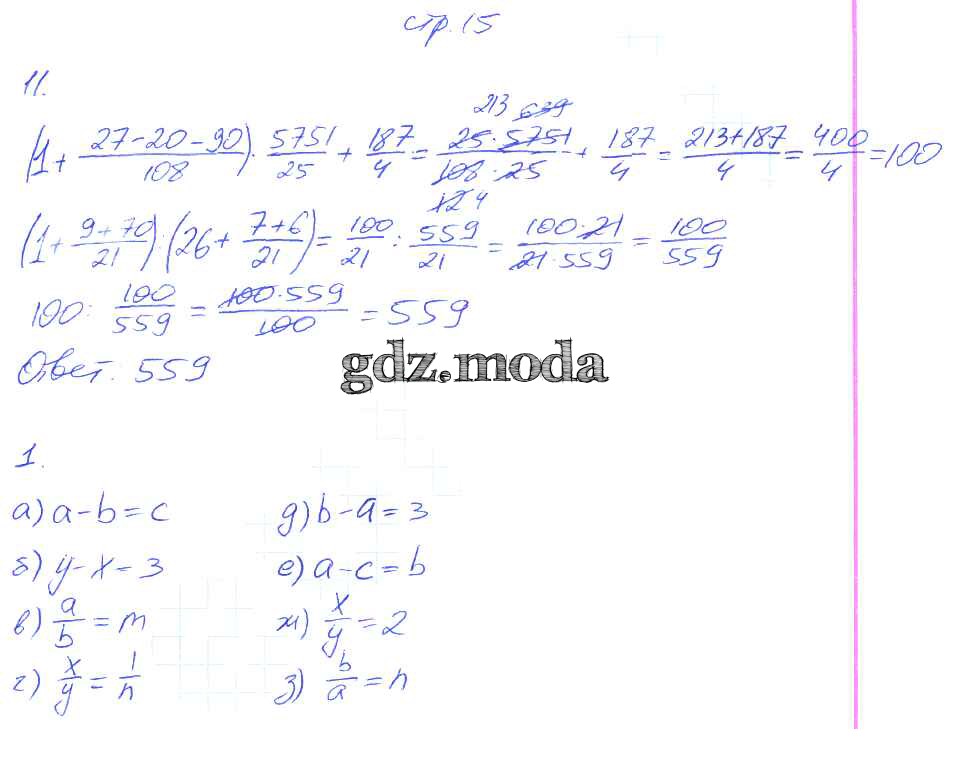 стр. 15
11.
(1 + (27-20-90)/108) · 5751/25 + 187/4 = (25·5751)/(108·25) + 187/4 = (213+187)/4 = 400/4 = 100
213 639
12 4
(1 + (9+70)/21) : (26 + (7+6)/21) = 100/21 : 559/21 = (100·21)/(21·559) = 100/559
100 : 100/559 = (100·559)/100 = 559
Ответ: 559
gdz.moda
1.
а) a-b=c
д) b-a=3
б) y-x=3
е) a-c=b
в) a/b = m
ж) x/y = 2
г) x/y = 1/n
з) b/a = n